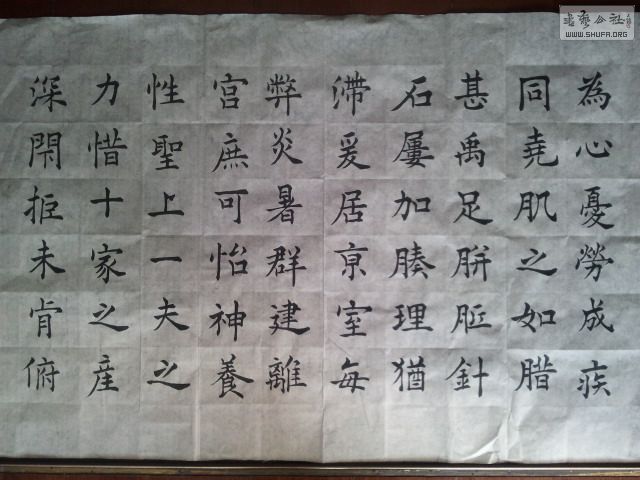 為心憂勞成疾
同堯肌之如腊
甚禹足胼胝針
石屢加腠理猶
滯爰居亰室每
弊炎暑群建離
宮庶可怡神養
性聖上一夫之
力惜十家之産
深閇拒未肯俯
書藝公社
WWW.SHUFA.ORG